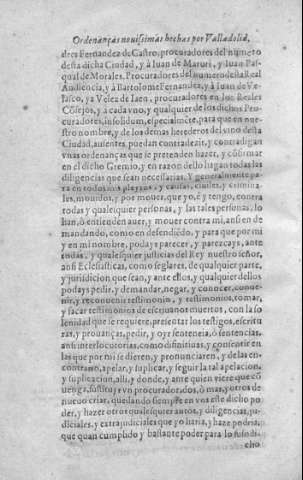 Ordenanças nouissimas hechas por Valladolid,
dres Fernandez de Castro, procuradores del numero
desta dicha Ciudad, y à Iuan de Maruri, y Iuan Pas-
qual de Morales, Procuradores del numero de la Real
Audiencia, y à Bartolome Fernandez, y à Iuan de Ve-
lasco, ya Velez de Iaen, procuradores en los Reales
Cõsejos, y à cada vno, y qualquier de los dichos Pro-
curadores, insolidum, especialmẽte, para que en nue-
stro nombre, y de los demas herederos del vino desta
Ciudad, ausentes, puedan contradezir, y contradigan
vnas ordenanças que se pretenden hazer, y cõfirmar
en el dicho Gremio, y en razon dello hagan todas las
diligencias que sean necessarias. Y generalmente pa-
ra en todos mis pleytos, y causas, ciuiles, y crimina-
les, mouidos, y por mouer, que yo, è y tengo, contra
todas y qualesquier personas, y las tales personas, lo
han, ò entienden auer, y mouer contra mi, ansi en de
mandando, como en defendiẽdo, y para que por mi
y en mi nombre, podays parecer, y parezcays, ante
todas, y qualesquier justicias del Rey nuestro señor,
ansi Eclesiasticas, como seglares, de qualquier parte,
y juridicion que sean, y ante ellos, y qualquier dellos
podays pedir, y demandar, negar, y conocer, conue-
nir, y reconuenir testimonio, y testimonios, tomar,
y sacar testimonios de escriuanos muertos, con la so
lenidad que se requiere, presentar los testigos, escritu
ras, y prouanças, pedir, y oyr sentencia, ò sentencias,
ansi interlocutorias, como difinitiuas, y consentir en
las que por mi se dieren, y pronunciaren, y de las en
contrario, apelar, y suplicar, y seguir la tal apelacion,
y suplicacion, alli, y donde, y ante quien viere que cõ
uenga, sustituyr vn procurador, dos, ò mas, y otros de
nueuo criar, quedando siempre en vos este dicho po
der, y hazer otros qualesquier autos, y diligencias, ju-
diciales, y extrajudiciales que yo haria, y haze podria,
que quan cumplido y bastante poder para lo susodi-
cho